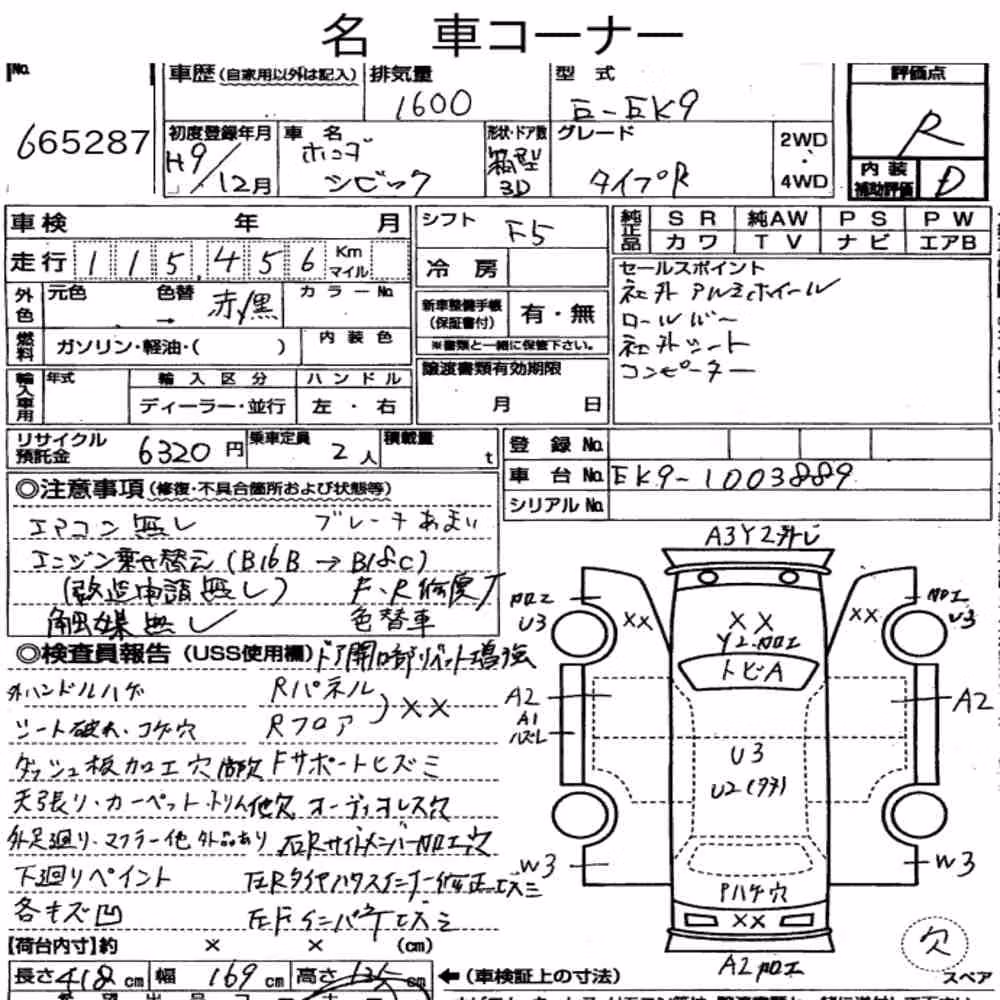 名 車コーナー
No. 665287
車歴(自家用以外は記入)
排気量 1600
型式 E-EK9
評価点 R
初度登録年月 H9/12月
車名 ホンダ シビック
形状・ドア数 箱型 3D
グレード タイプR
2WD・4WD
内装補助評価 D
車検 年 月
走行 115,456 Km マイル
シフト F5
冷房
純正品 SR 純AW PS PW
カワ TV ナビ エアB
外色 元色 → 色替 赤/黒 カラーNo.
燃料 ガソリン・軽油・( )
内装色
新車整備手帳(保証書付) 有・無
※書類と一緒に保管下さい。
セールスポイント
社外アルミホイール
ロールバー
社外シート
コンピーター
輸入車用 年式 輸入区分 ハンドル
ディーラー・並行 左・右
譲渡書類有効期限 月 日
リサイクル預託金 6320円
乗車定員 2人
積載量 t
登録No.
車台No. EK9-1003889
シリアルNo.
◎注意事項(修復・不具合箇所および状態等)
エアコン無し ブレーキあまい
エンジン乗せ替え(B16B→B18C)
(改造申請無し) F、R修復
触媒無し 色替車
◎検査員報告(USS使用欄) ドア開口部リベット増強
外ハンドルハゲ Rパネル
シート破れ、コゲ穴 Rフロア ) ××
ダッシュ板加工穴 Fサポートヒズミ
天張り・カーペット・トリム他欠 オーディオレス穴
外足廻り・マフラー他外品あり 左Rサイドメンバー加工穴
下廻りペイント 左Rタイヤハウスインナー修正ヒズミ
各キズ凹
【荷台内寸】約 × × (cm)
長さ 418cm 幅 169cm 高さ 135cm
←(車検証上の寸法)
A3Y2
加工 U3
××
××
Y2.加工
××
加工 U3
トビA
A2
A1
A2
U3
U2(タタ)
W3
W3
Pハゲ穴
××
A2加工
欠
スペア